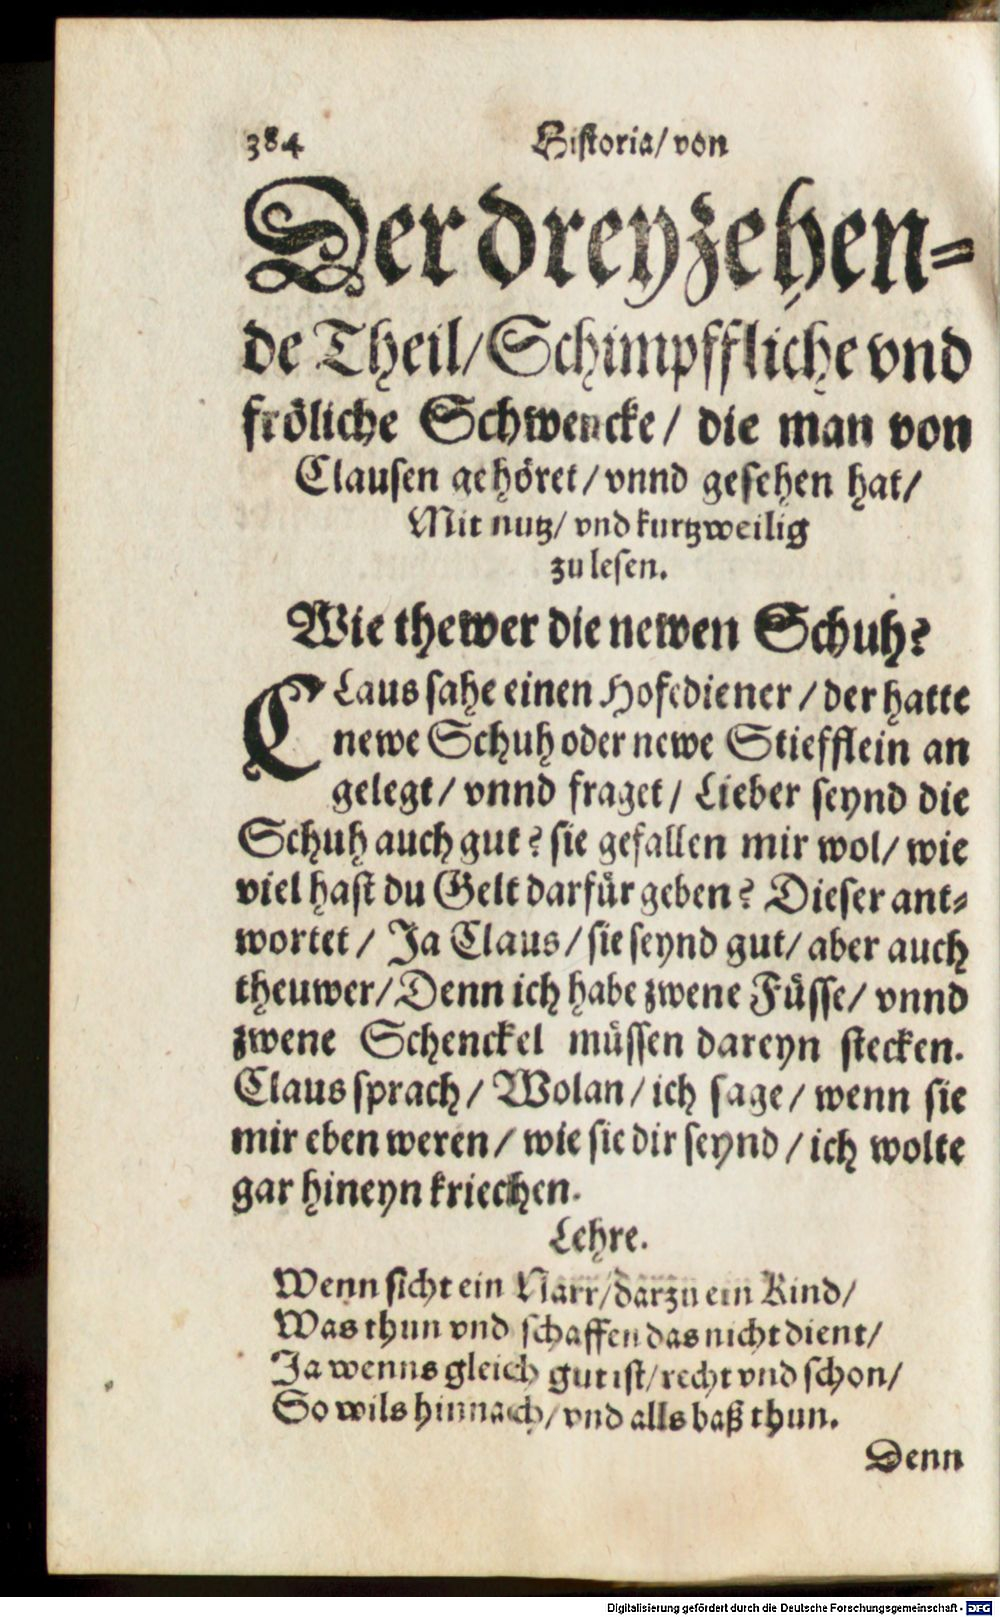 384 Historia/ von
Der dreyzehen-
de Theil/ Schimpffliche vnd
fröliche Schwencke/ die man von
Clausen gehöret/ vnnd gesehen hat/
Mit nutz/ vnd kurtzweilig
zu lesen.
Wie thewer die newen Schuh?
CLaus sahe einen Hofediener/ der hatte
newe Schuh oder newe Stiefflein an
gelegt/ vnnd fraget/ Lieber seynd die
Schuh auch gut? sie gefallen mir wol/ wie
viel hast du Gelt darfür geben? Dieser ant-
wortet/ Ja Claus/ sie seynd gut/ aber auch
theuwer/ Denn ich habe zwene Füsse/ vnnd
zwene Schenckel müssen dareyn stecken.
Claus sprach/ Wolan/ ich sage/ wenn sie
mir eben weren/ wie sie dir seynd/ ich wolte
gar hineyn kriechen.
Lehre.
Wenn sicht ein Narr/ darzu ein Kind/
Was thun vnd schaffen das nicht dient/
Ja wenns gleich gut ist/ recht vnd schon/
So wils hinnach/ vnd alls baß thun.
Denn
Digitalisierung gefördert durch die Deutsche Forschungsgemeinschaft - DFG